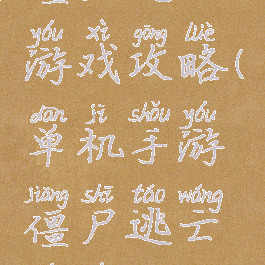 yóu xì gōng lüè
游戏攻略(
dān jī shǒu yóu
单机手游
jiāng shī táo wáng
僵尸逃亡